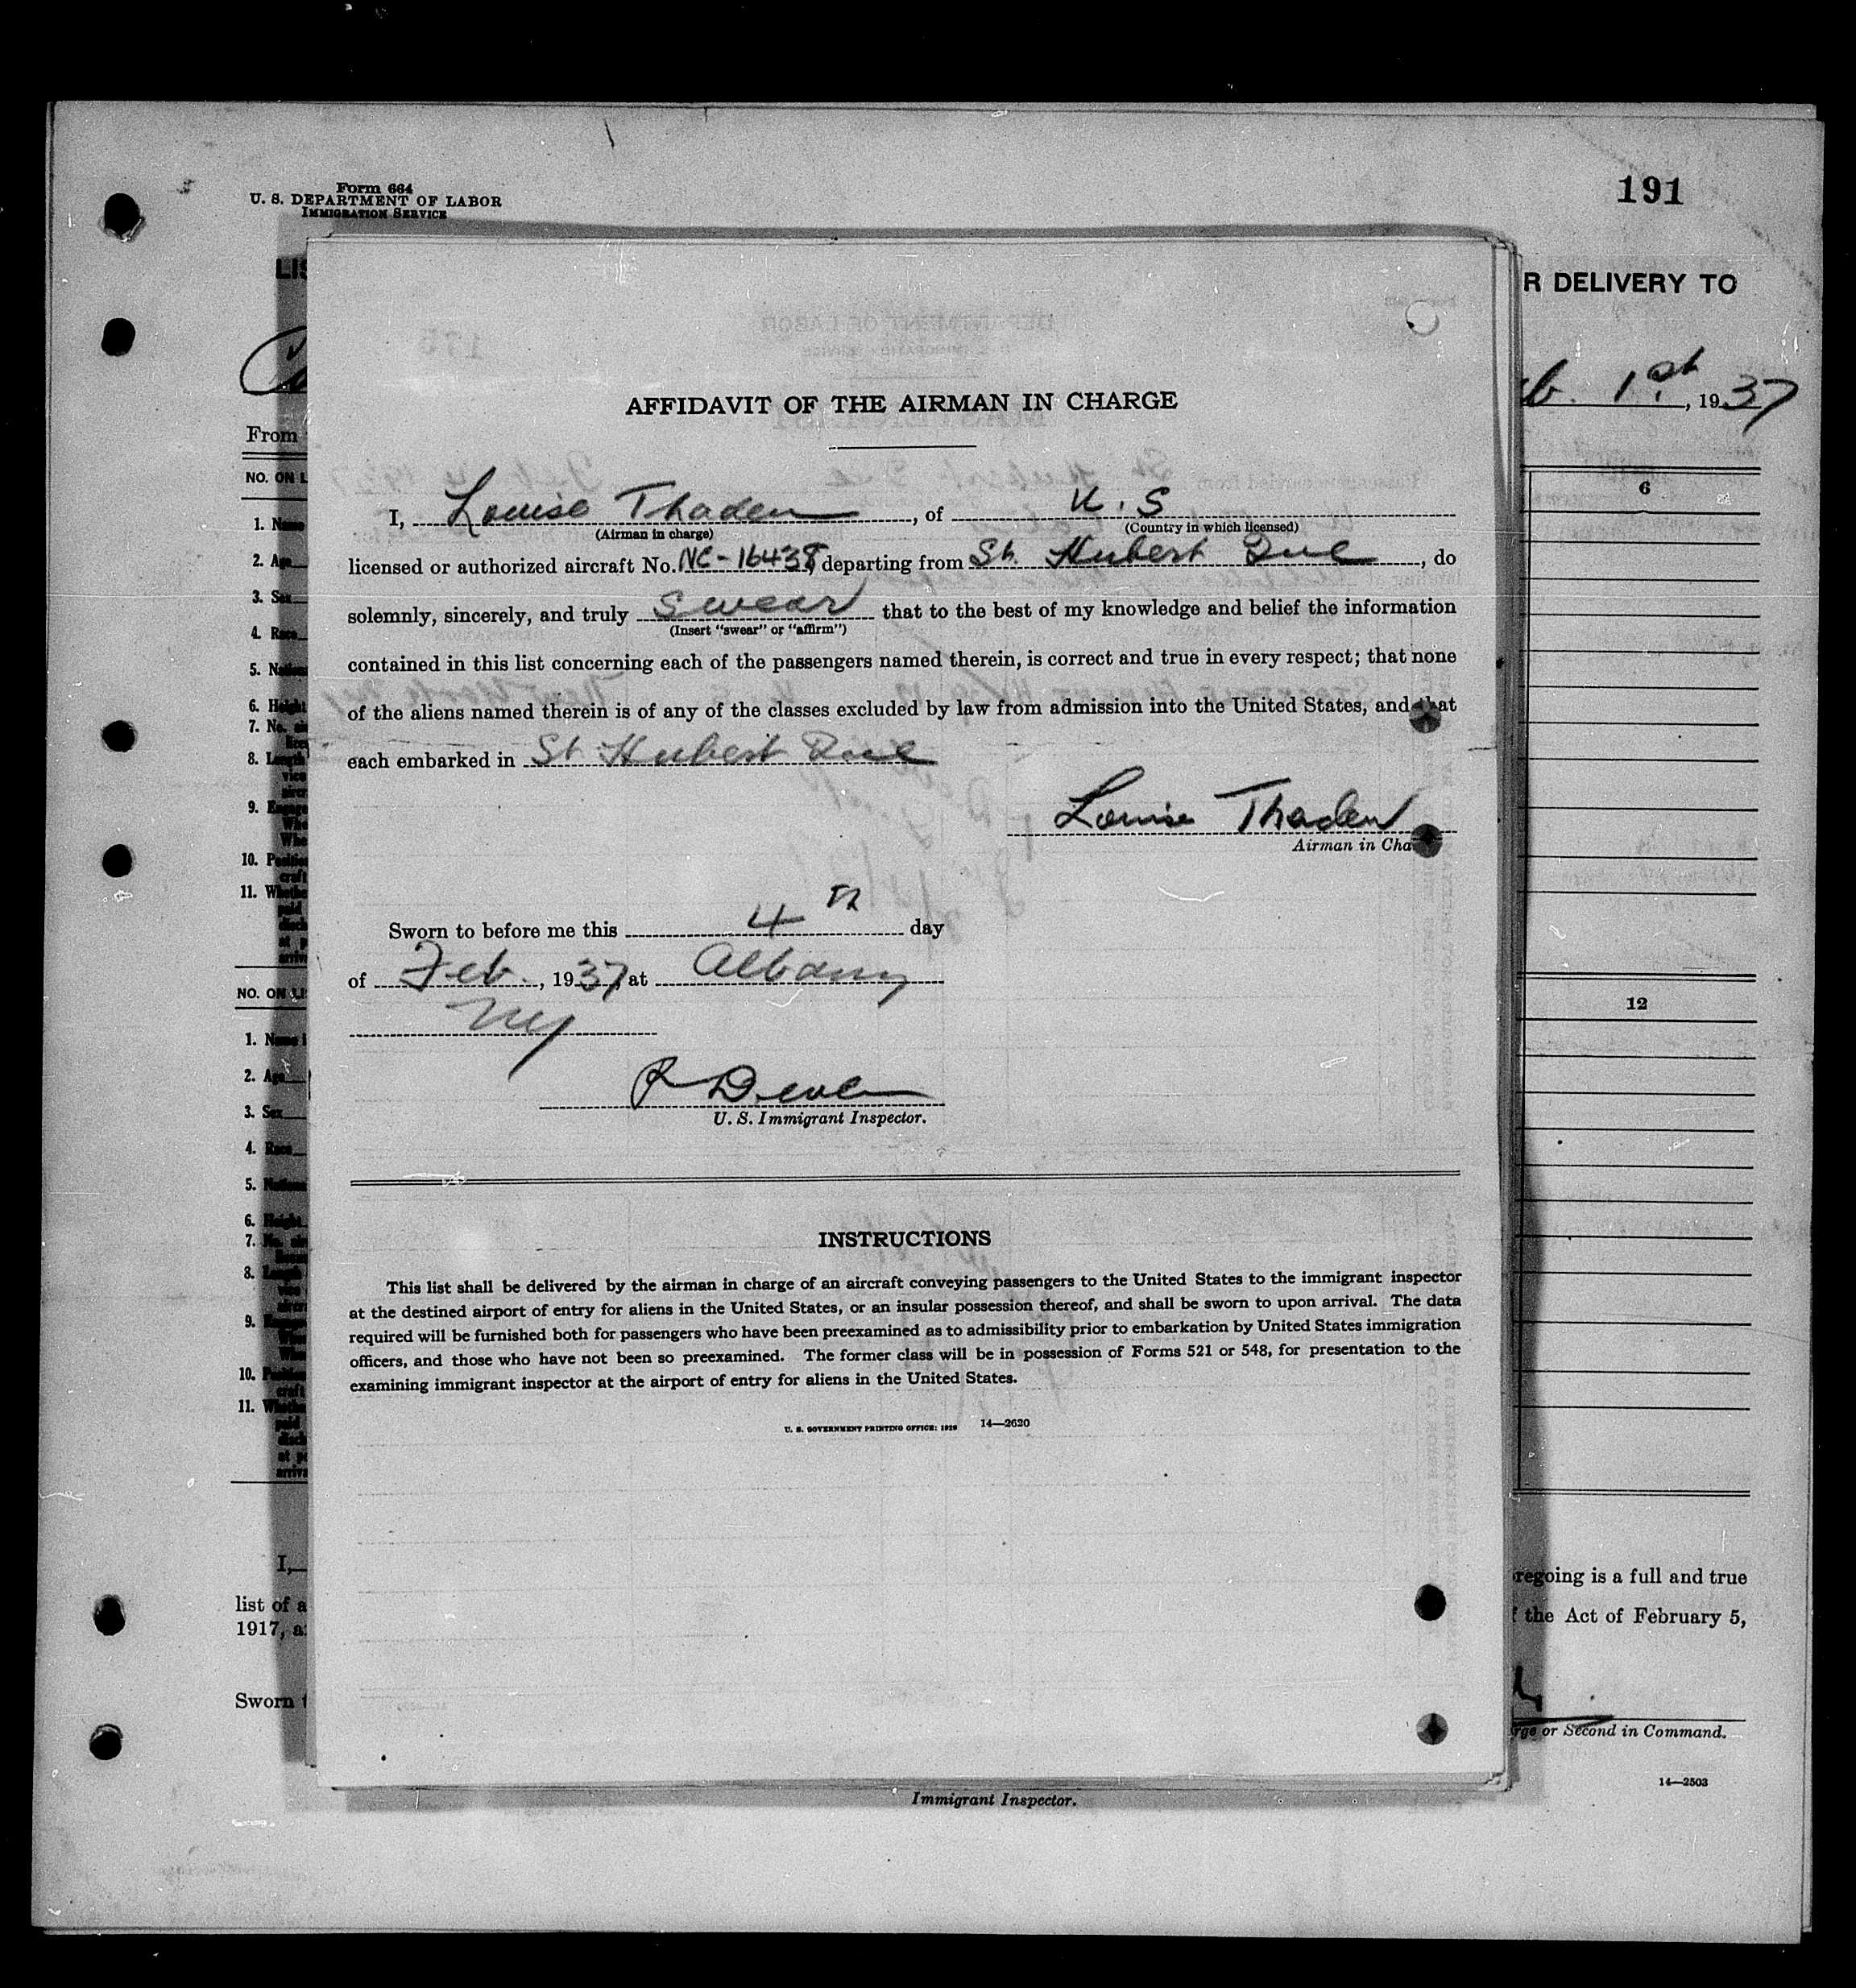 Form 664
U. S. DEPARTMENT OF LABOR
IMMIGRATION SERVICE
191
LIS
R DELIVERY TO
b. 1st, 1937
From
NO. ON L
6
1. Name
2. Age
3. Sex
4. Race
5. Nationa
6. Height
7. No.
8. Length
9. Engage
10. Position
11. Whethe
NO. ON LI
12
1. Name
2. Age
3. Sex
4. Race
5. Nationa
6. Height
7. No.
8. Length
9. Engage
10. Position
11. Whethe
I,
list of a
1917, a
Sworn t
regoing is a full and true
f the Act of February 5,
rge or Second in Command.
14—2503
Immigrant Inspector.
AFFIDAVIT OF THE AIRMAN IN CHARGE
I, Louise Thaden, of U.S
(Airman in charge) (Country in which licensed)
licensed or authorized aircraft No. NC-16438, departing from St. Hubert Que, do
solemnly, sincerely, and truly swear that to the best of my knowledge and belief the information
(Insert "swear" or "affirm")
contained in this list concerning each of the passengers named therein, is correct and true in every respect; that none
of the aliens named therein is of any of the classes excluded by law from admission into the United States, and that
each embarked in St Hubert Que
Louise Thaden
Airman in Cha
Sworn to before me this 4th day
of Feb., 1937, at Albany
NY
U. S. Immigrant Inspector.
INSTRUCTIONS
This list shall be delivered by the airman in charge of an aircraft conveying passengers to the United States to the immigrant inspector
at the destined airport of entry for aliens in the United States, or an insular possession thereof, and shall be sworn to upon arrival. The data
required will be furnished both for passengers who have been preexamined as to admissibility prior to embarkation by United States immigration
officers, and those who have not been so preexamined. The former class will be in possession of Forms 521 or 548, for presentation to the
examining immigrant inspector at the airport of entry for aliens in the United States.
U. S. GOVERNMENT PRINTING OFFICE: 1929 14—2620